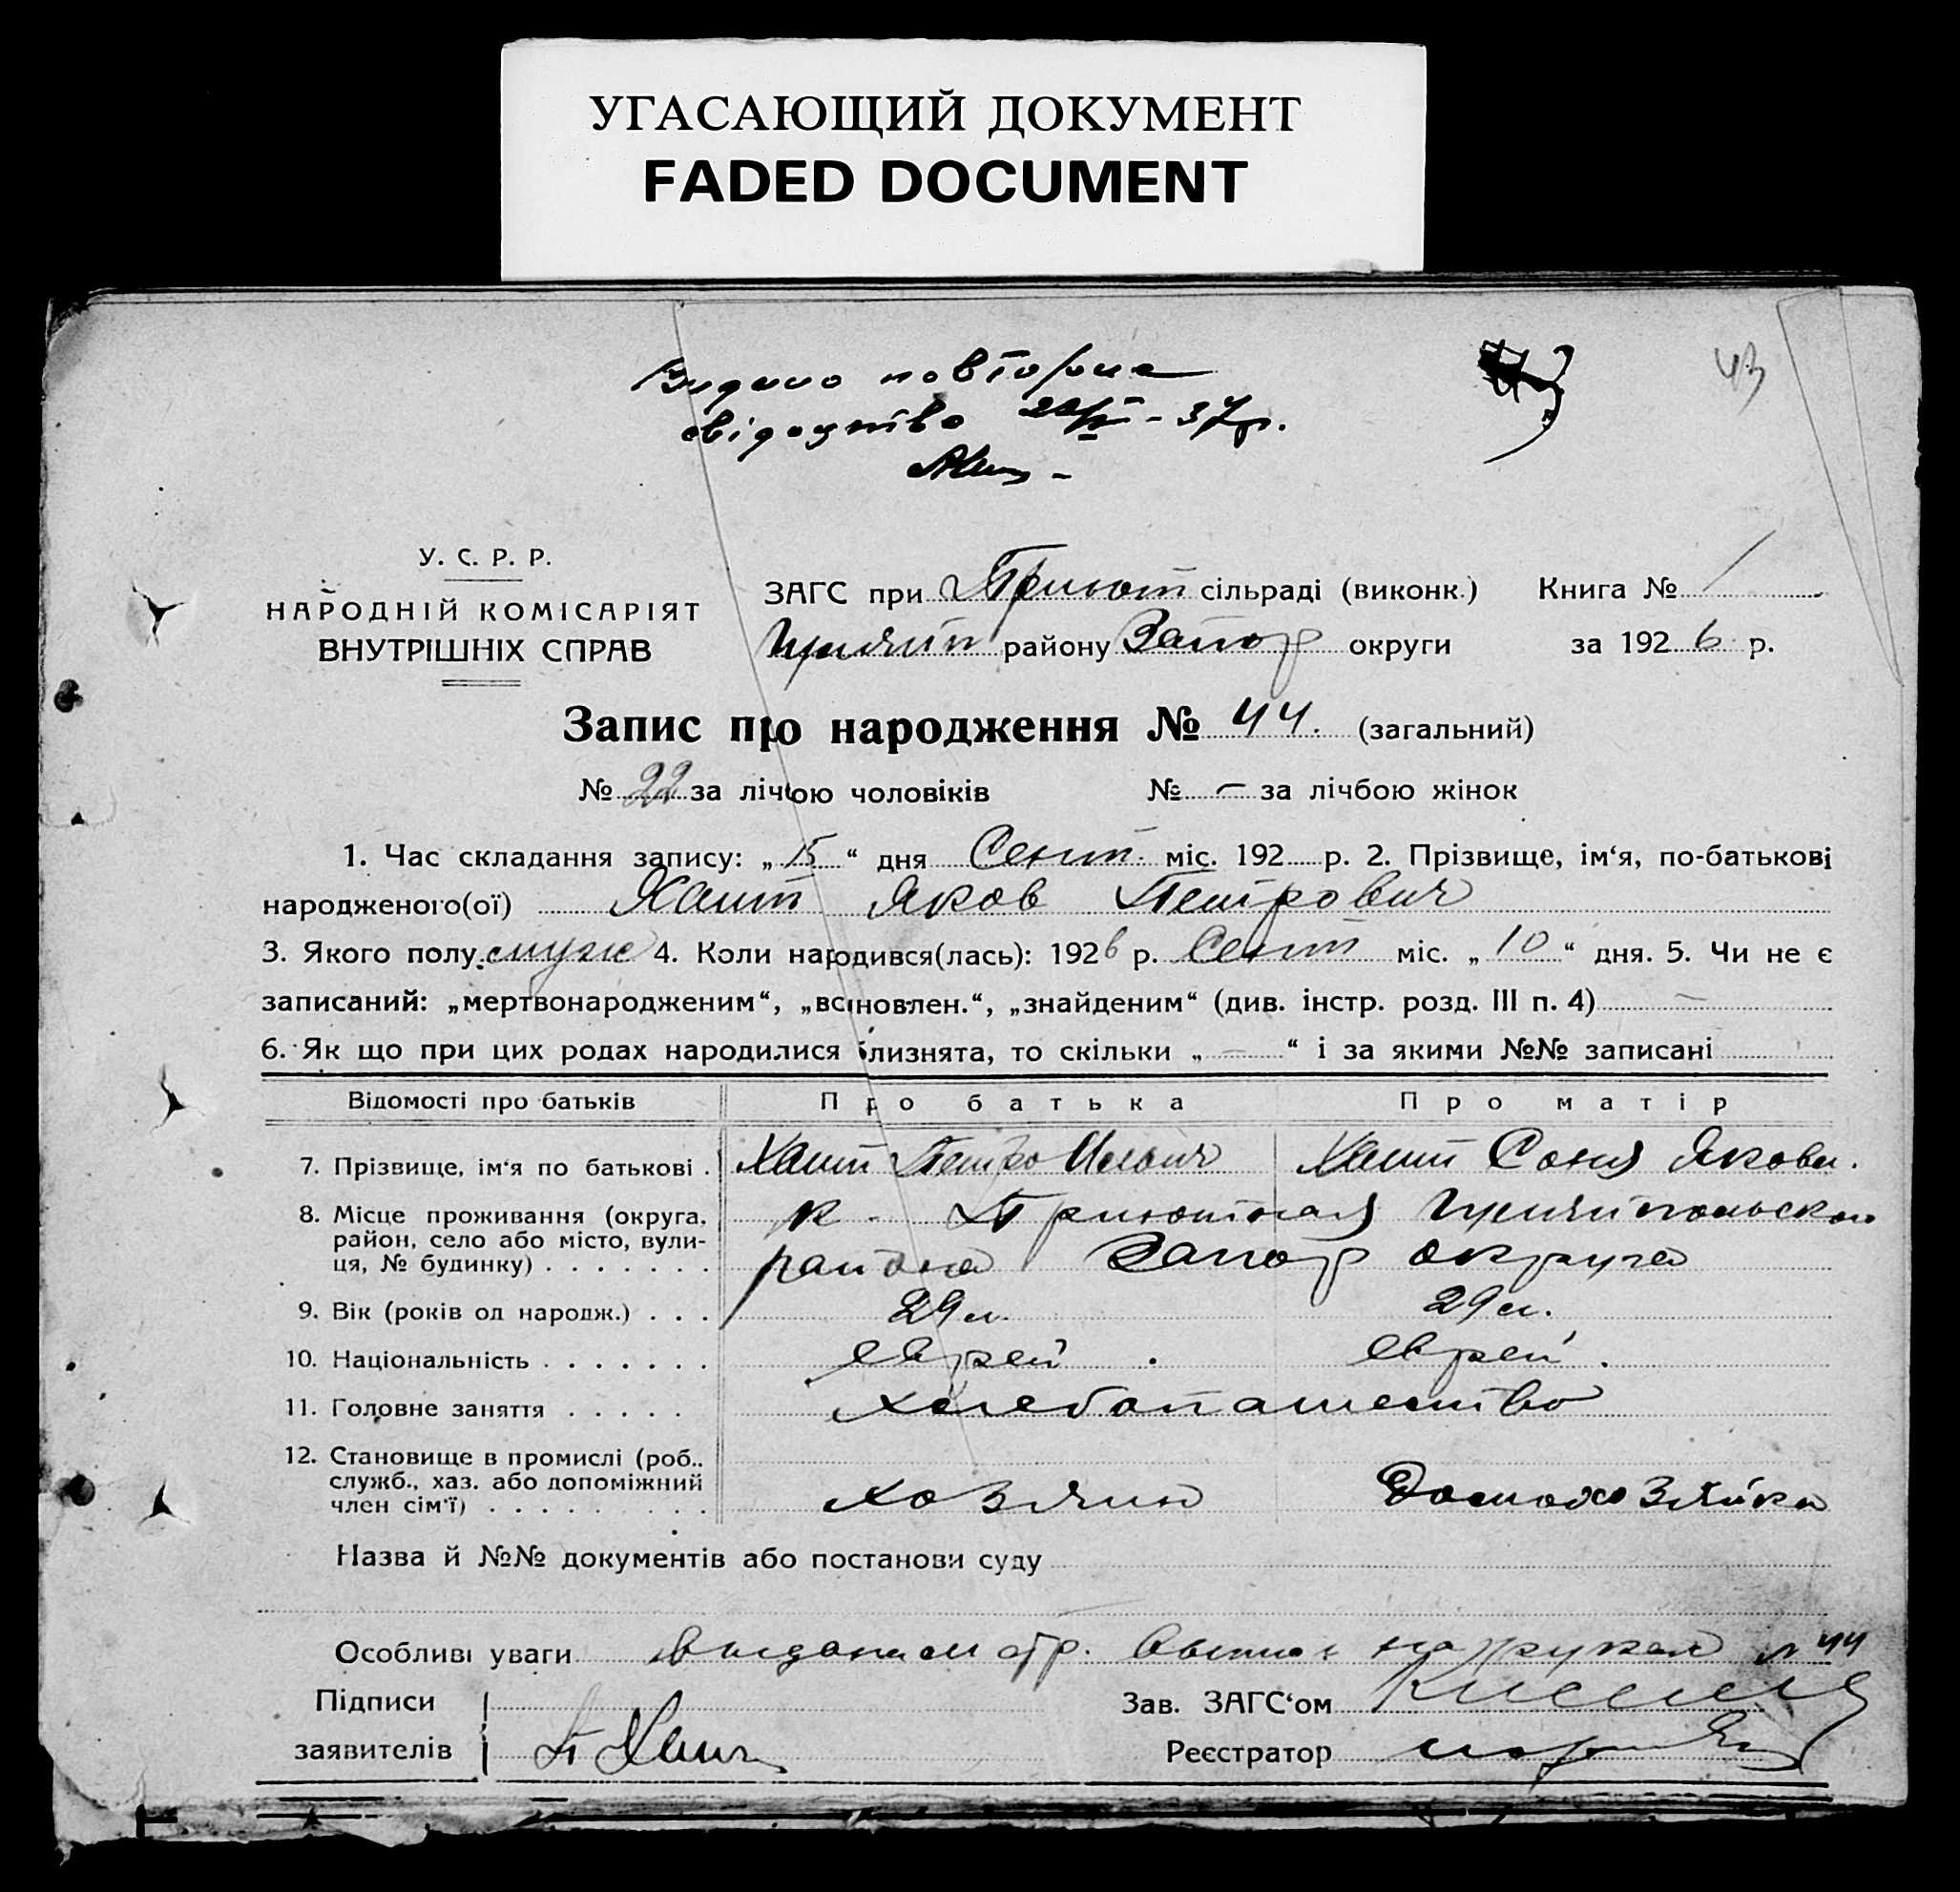 УГАСАЮЩИЙ ДОКУМЕНТ
FADED DOCUMENT
Видано повторне
свідоцтво - 37р.
43
У. С. Р. Р.
НАРОДНІЙ КОМІСАРІЯТ
ВНУТРІШНІХ СПРАВ
ЗАГС при Приют сільраді (виконк.) Книга № 1
району Запор округи за 1926 р.
Запис про народження № 44. (загальний)
№ 22 за лічбою чоловіків № – за лічбою жінок
1. Час складання запису: „15“ дня Сент. міс. 192 р. 2. Прізвище, ім‘я, по-батькові
народженого(ої) Хаит Яков Петрович
3. Якого полу муж 4. Коли народився(лась): 1926 р. Сент міс. „10“ дня. 5. Чи не є
записаний: „мертвонародженим“, „встновлен.“, „знайденим“ (див. інстр. розд. III п. 4) –
6. Як що при цих родах народилися близнята, то скільки „–“ і за якими №№ записані
Відомості про батьків Про батька Про матір
7. Прізвище, ім‘я по батькові . Хаит Петро Хаит Соня Яковл.
8. Місце проживання (округа, к. Приютная Гуляйпольского
район, село або місто, вули-
ця, № будинку) . . . . . . . района Запор округа
9. Вік (років од народж.) . . . 29 л. 29 л.
10. Національність . . . . . . . еврей . еврей .
11. Головне заняття . . . . . хлебопашество
12. Становище в промислі (роб..
служб., хаз. або допоміжний
член сім‘ї) . . . . . . . . . хозяин Домохозяйка
Назва й №№ документів або постанови суду
Особливі уваги № 44
Підписи Зав. ЗАГС‘ом
заявителів П Хаит Реєстратор